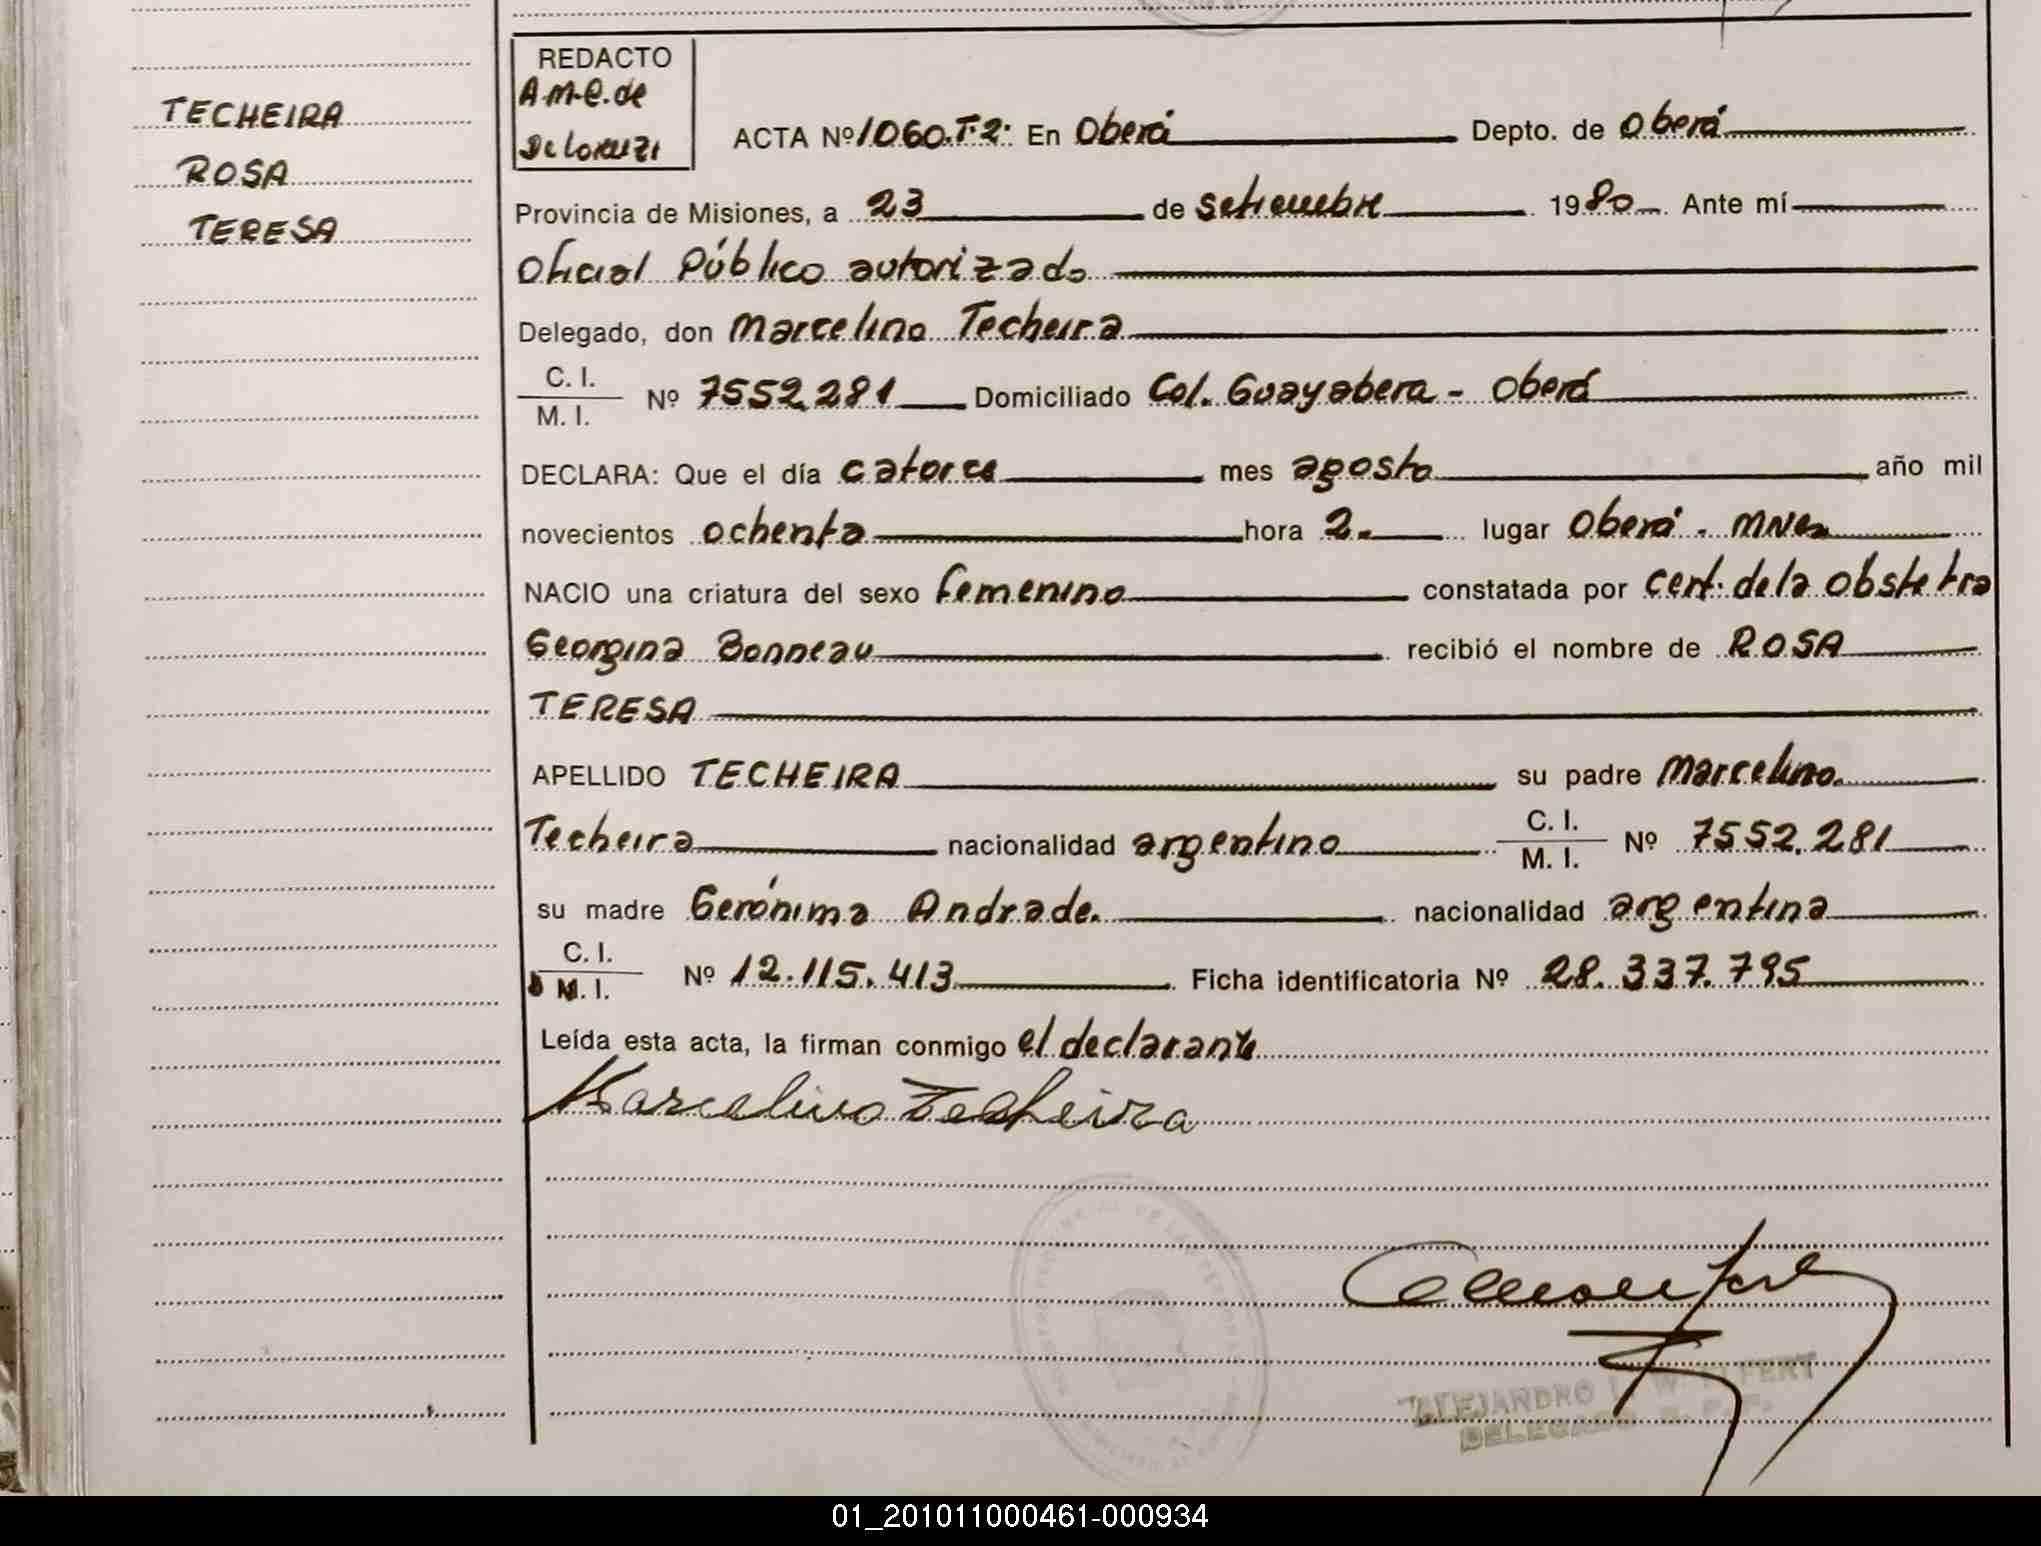 TECHEIRA
ROSA
TERESA
REDACTO
A.M.C. de
De Lorenzi
ACTA Nº 1060.T.2: En Oberá Depto. de Oberá
Provincia de Misiones, a 23 de setiembre 1980 Ante mí
Oficial Público autorizado
Delegado, don Marcelino Techeira
C. I.
M. I.
Nº 7552.281 Domiciliado Col. Guayabera - Oberá
DECLARA: Que el día catorce mes agosto año mil
novecientos ochenta hora 2. lugar Oberá - Mnes
NACIO una criatura del sexo femenino constatada por cert. de la obstetra
Georgina Bonneau recibió el nombre de ROSA
TERESA
APELLIDO TECHEIRA su padre Marcelino
Techeira nacionalidad argentino C. I. M. I. Nº 7552.281
su madre Gerónima Andrade. nacionalidad argentina
C. I.
M. I.
Nº 12.115.413 Ficha identificatoria Nº 28.337.795
Leída esta acta, la firman conmigo el declarante
Marcelino Techeira
ALEJANDRO
DELEGADO
01_201011000461-000934